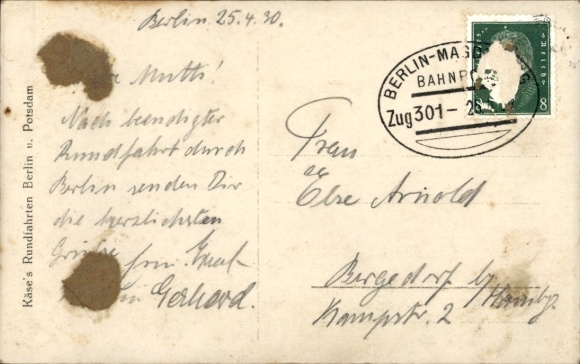 Berlin 25.4.30.
Mutti!
Nach beendigter
Rundfahrt durch
Berlin senden Dir
die herzlichsten
Grüße
Gerhard.
Käse's Rundfahrten Berlin u. Potsdam
BERLIN-MAGD
BAHNPO
Zug 301 - 25
8
Frau
Else Arnold
Bergedorf b/
Hambg.
Kampstr. 2